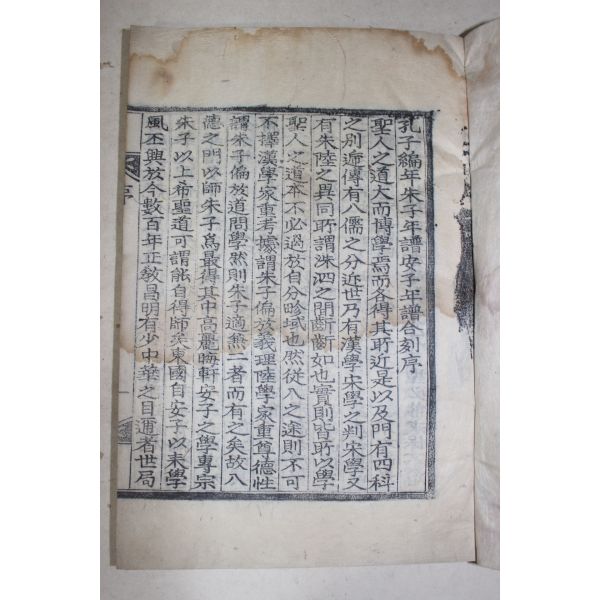 孔子編年朱子年譜安子年譜合刻序
聖人之道大而博學焉而各得其所近是以及門有四科
之別遞傳有八儒之分近世乃有漢學宋學之判宋學又
有朱陸之異同所謂洙泗之間齗齗如也實則皆所以學
聖人之道本不必過於自分畛域也然從入之途則不可
不擇漢學家重考據謂朱子偏於義理陸學家重尊德性
謂朱子偏於道問學然則朱子適兼二者而有之矣故入
德之門以師朱子爲最得其中高麗晦軒安子之學專宗
朱子以上希聖道可謂能自得師矣東國自安子以來學
風丕興於今數百年正敎昌明有少中華之目邇者世局
序